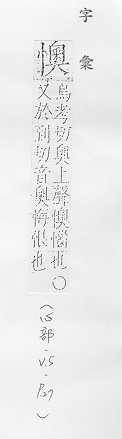 字彙
懊
烏考切奧上聲懊惱也〇
又於到切音奧悔恨也
(心部・V.5・P.27)